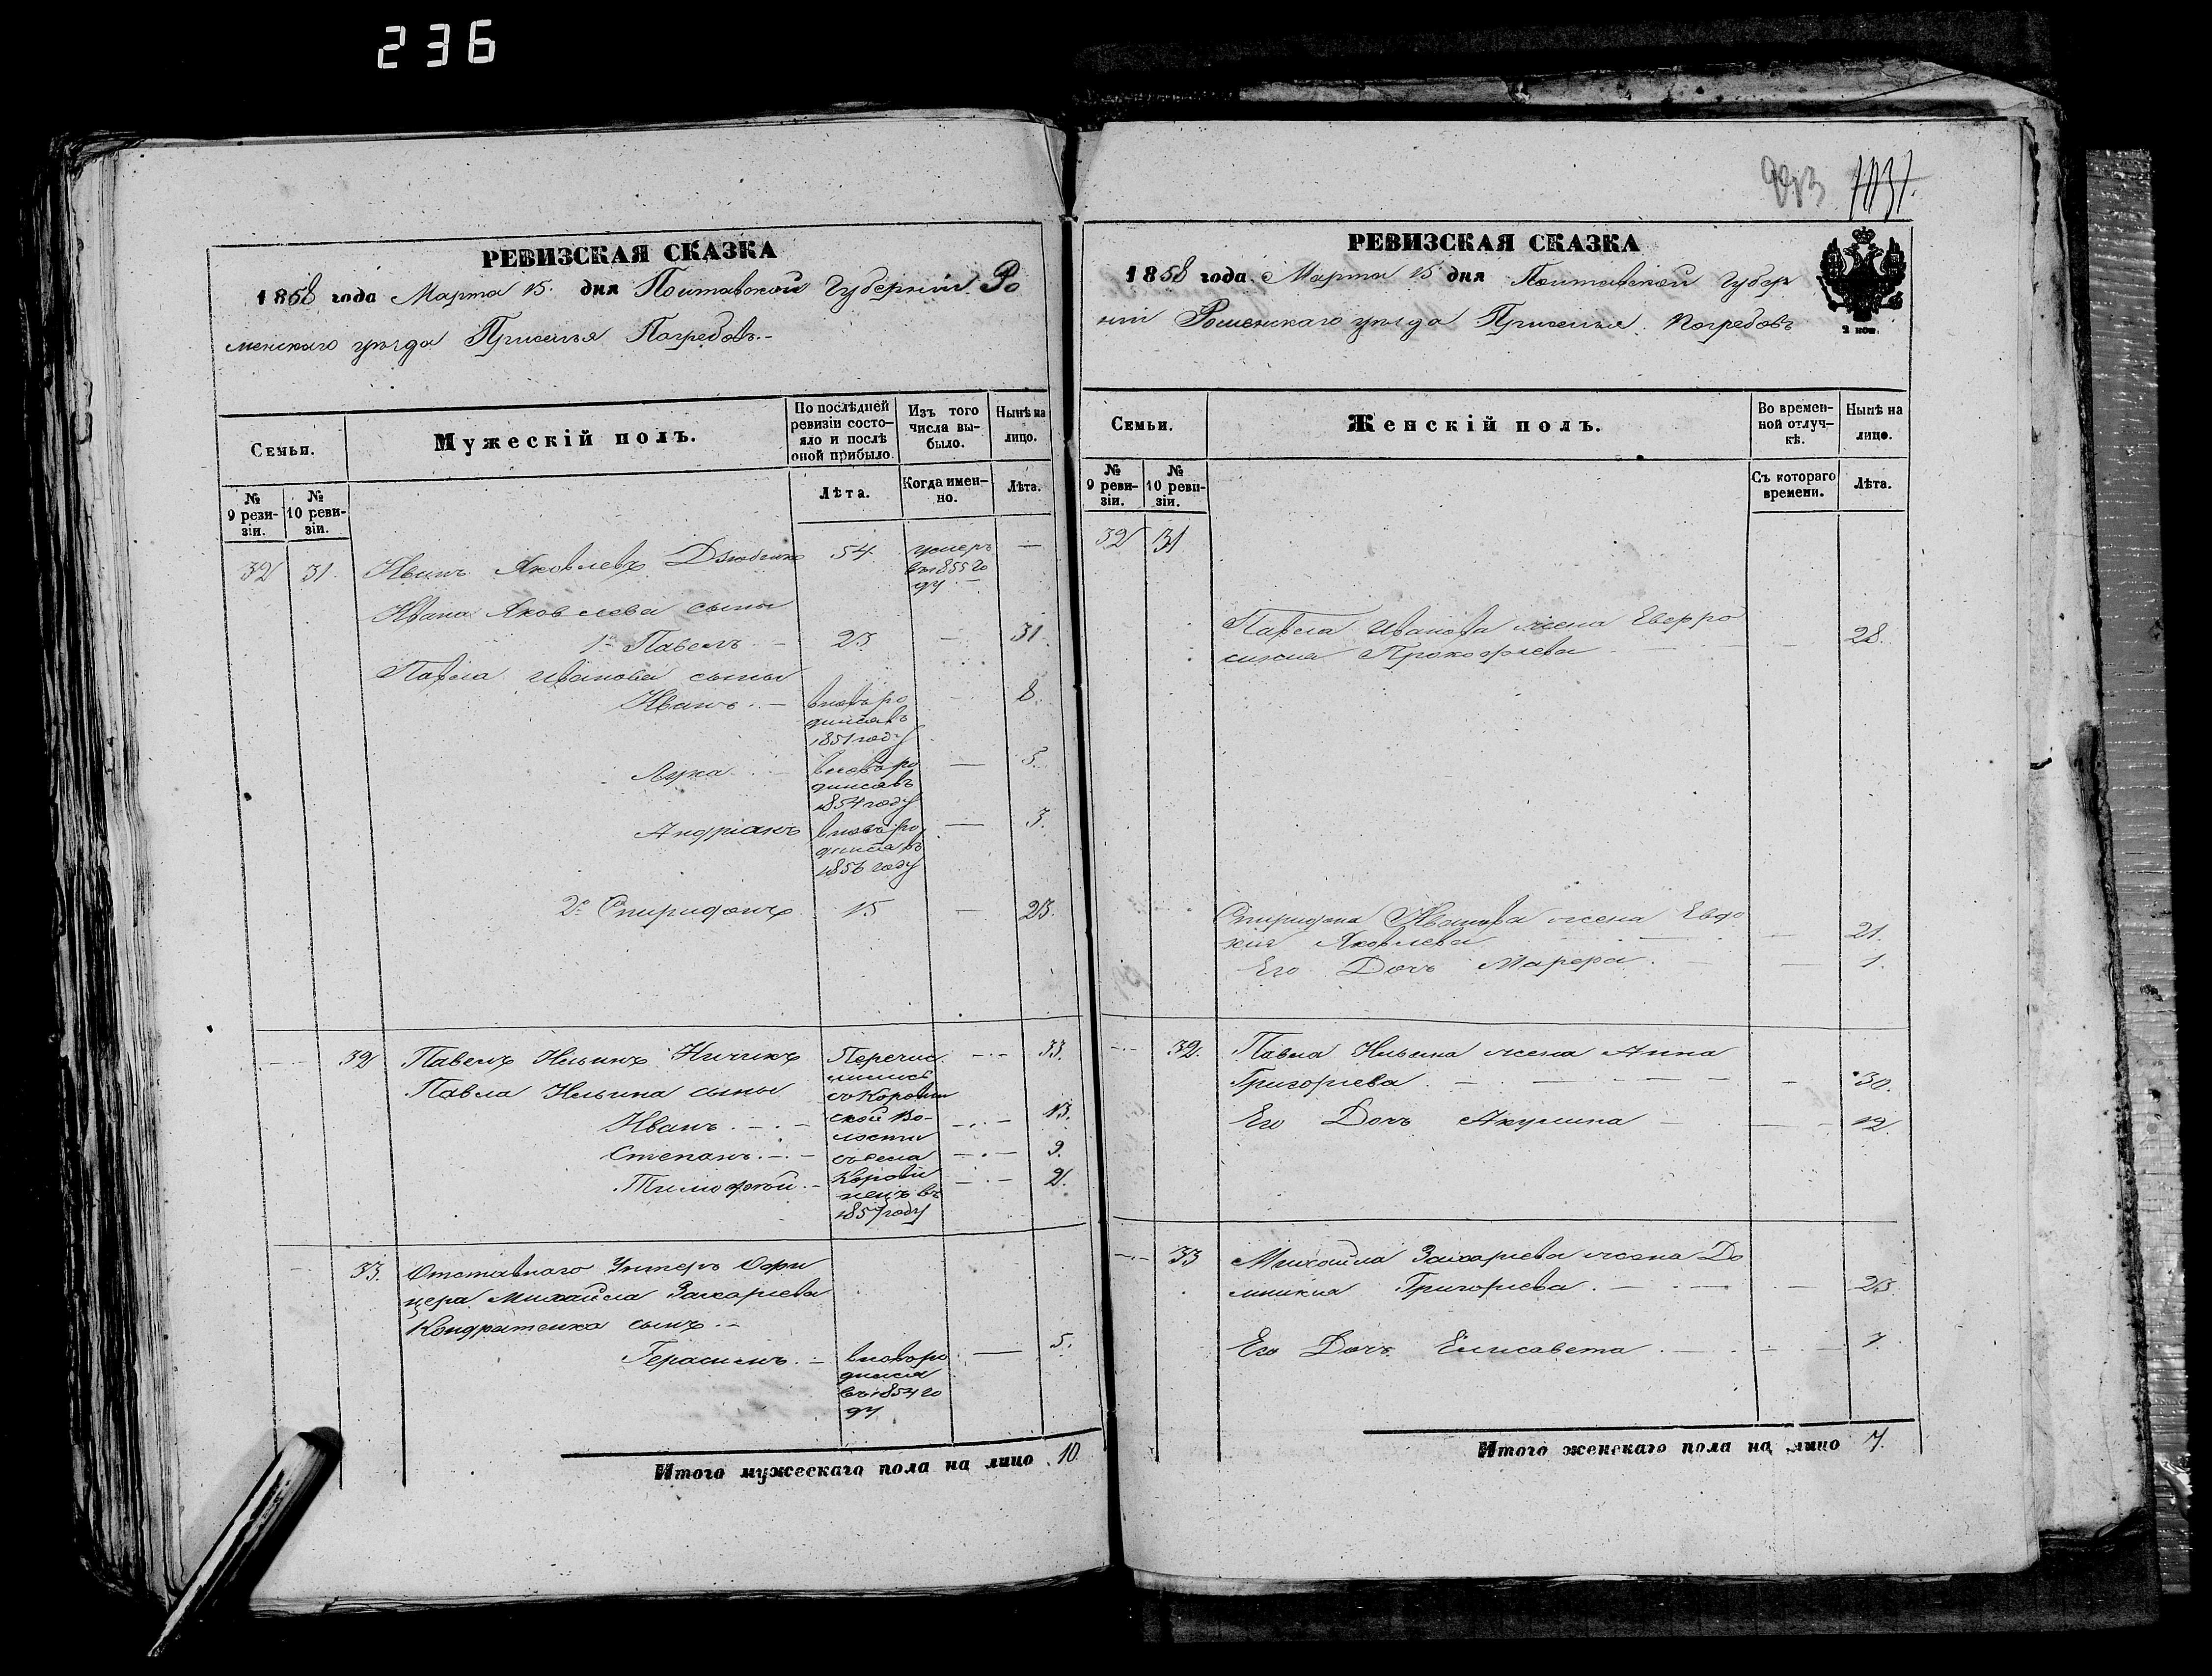 236
РЕВИЗСКАЯ СКАЗКА
1858 года Марта 15. дня Полтавской Губерніи Ро
менскаго уѣзда Приселья Погребовъ.-
Семьи.
Мужескій полъ.
По послѣдней ревизіи состо-яло и послѣ оной прибыло.
Изъ того числа вы-было.
Нынѣ на лицо.
№ 9 реви-зіи.
№ 10 реви-зіи.
Лѣта.
Когда имен-но.
Лѣта.
32 31. Иванъ Яковлевъ 54 умеръ —
въ 1855 го
ду
Ивана Яковлева сыны
1й Павелъ - 23 — 31.
Павла Иванова сыны
Иванъ. - вновь ро — 8.
дился въ
1851 году
Лука - вновь ро — 5.
дился въ
1854 году
Андріанъ вновь ро — 3.
дился въ
1856 году
2й Спиридонъ 15 — 23.
32 Павелъ Ильинъ Ничикъ Перечис — 33.
Павла Ильина сыны лились
съ Коровин
Иванъ. - ской Во- — 13.
лости
Степанъ. - съ села — 9.
Тимофей. - Корови — 2.
нецъ въ
1857 году
33. Отставнаго Унтеръ Офи
цера Михайла Захарьева
Кондратенка сынъ. -
Герасимъ. - вновь ро — 5.
дился
въ 1854 го
ду
Итого мужескаго пола на лицо 10
1031.
РЕВИЗСКАЯ СКАЗКА
1858 года Марта 15 дня Полтавской Губер
ніи Роменскаго уѣзда Приселья Погребовъ
2 коп.
Семьи.
Женскій полъ.
Во времен-ной отлуч-кѣ.
Нынѣ на лицо.
№ 9 реви-зіи.
№ 10 реви-зіи.
Съ котораго времени.
Лѣта.
32 31
Павла Иванова жена Евфро
синия Прокофьева — 28.
Спиридона Иванова жена Евдо
кия Яковлева — 21.
Его Дочь Марфа. — 1.
32. Павла Ильина жена Анна
Григорьева. — 30.
Его Дочь Акулина — 12.
33 Михайла Захарьева жена До
мникия Григорьева. — 23.
Его Дочь Елисавета. — 7.
Итого женскаго пола на лицо 7.